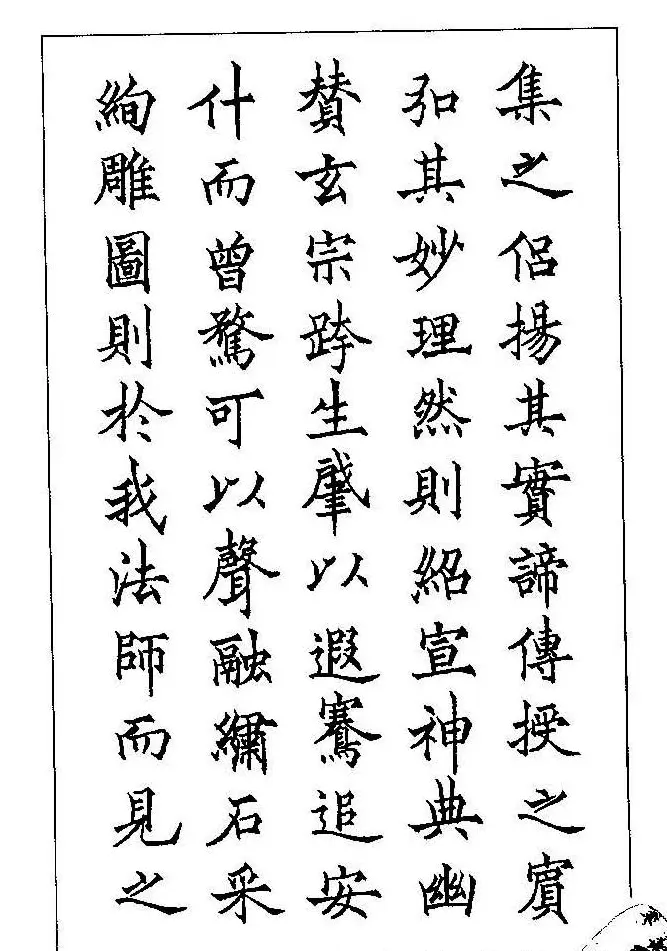 集之侶揚其實諦傳授之賓
弘其妙理然則紹宣神典幽
賛玄宗跨生肇以遐騫追安
什而曾騖可以聲融繡石采
絢雕圖則於我法師而見之